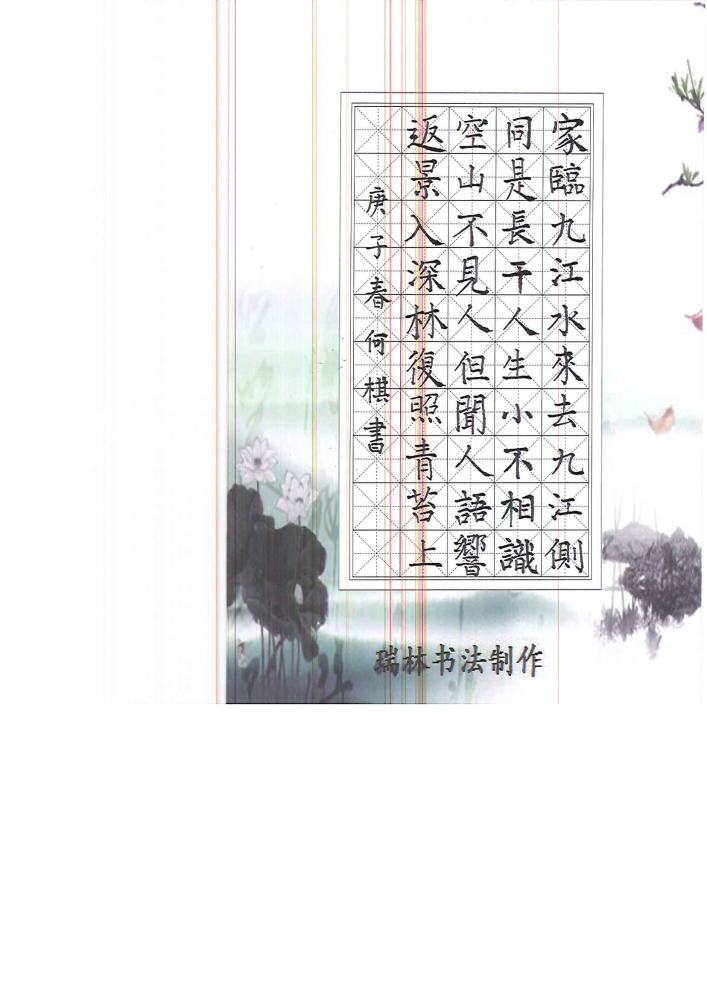 家臨九江水來去九江側
同是長干人生小不相識
空山不見人但聞人語響
返景入深林復照青苔上
庚子春何棋書
瑞林书法制作